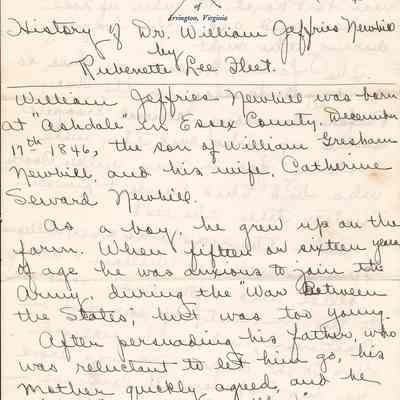 of
Irvington, Virginia
History of Dr. William Jeffries Newbill
by
Rubenette Lee Fleet.
William Jeffries Newbill was born
at "Ashdale" in Essex County, December
17th 1846, the son of William Gresham
Newbill, and his wife, Catherine
Seward Newbill.
As a boy, he grew up on the
farm. When fifteen or sixteen years
of age he was anxious to join the
Army, during the "War Between
the States," but was too young.
After persuading his father, who
was reluctant to let him go, his
Mother quickly agreed, and he